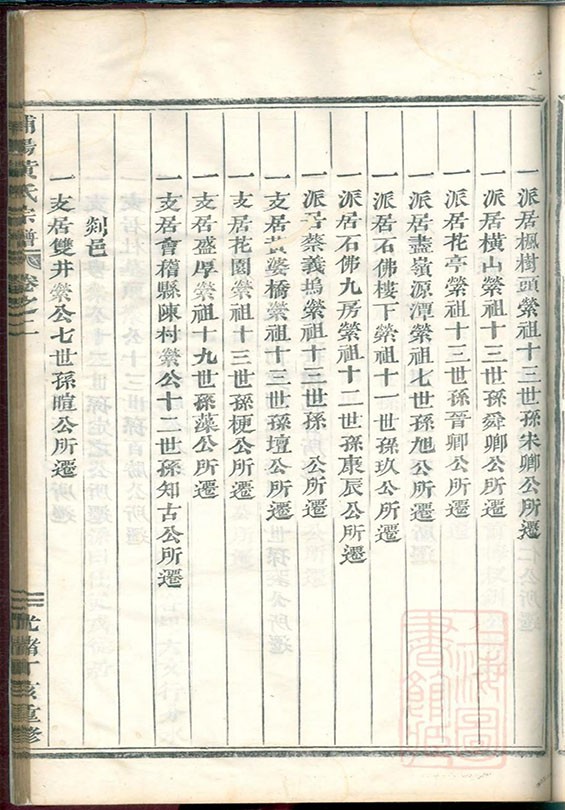 一派居楓樹頭縈祖十三世孫朱卿公所遷
一派居橫山縈祖十三世孫舜卿公所遷
一派居花亭縈祖十三世孫晉卿公所遷
一派居盡嶺源潭縈祖七世孫旭公所遷
一派居石佛樓下縈祖十一世孫玖公所遷
一派居石佛九房縈祖十二世孫康辰公所遷
一派居蔡義塢縈祖十三世孫 公所遷
一支居黃婆橋縈祖十三世孫壇公所遷
一支居花園縈祖十三世孫梗公所遷
一支居盛厚縈祖十九世孫藻公所遷
一支居會稽縣陳村縈公十二世孫知古公所遷
剡邑
一支居雙井縈公七世孫暄公所遷
浦陽黃氏宗譜 卷之二
光緒丁亥重修
上海圖書館藏